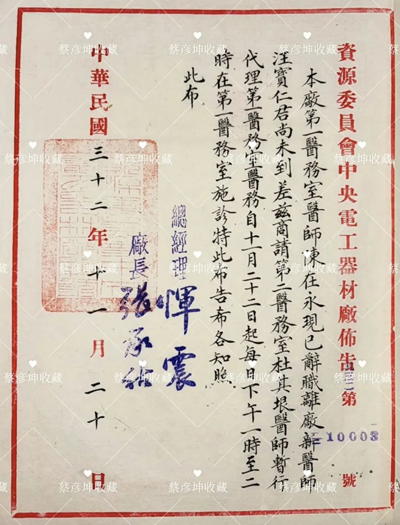 資源委員會中央電工器材廠佈告 第 號
10003
本廠第一醫務室醫師陳在永現已辭職離廠新醫師
汪寶仁君尚未到差茲商請第二醫務室杜其垠醫師暫行
代理第一醫務室醫務自十一月二十二日起每日下午一時至二
時在第一醫務室施診特此布告布各知照
此布
總經理 惲震
廠長 張承祜
中華民國三十二年十一月二十日
蔡彦坤收藏